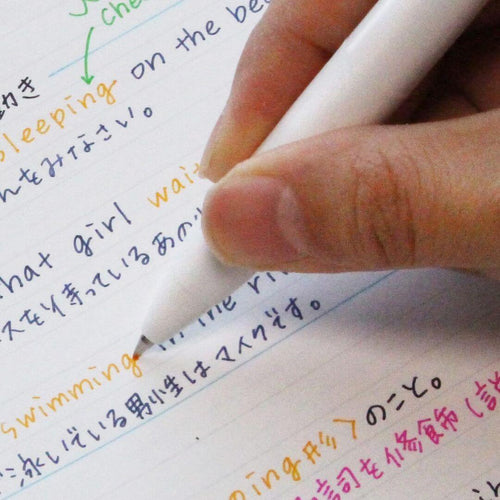 che
動き
sleeping on the be
んをみなさい。
that girl wai
スを待っているあの
swimming in the ri
泳いでいる男性はマイクです。
ing形〉のこと。
詞を修飾(